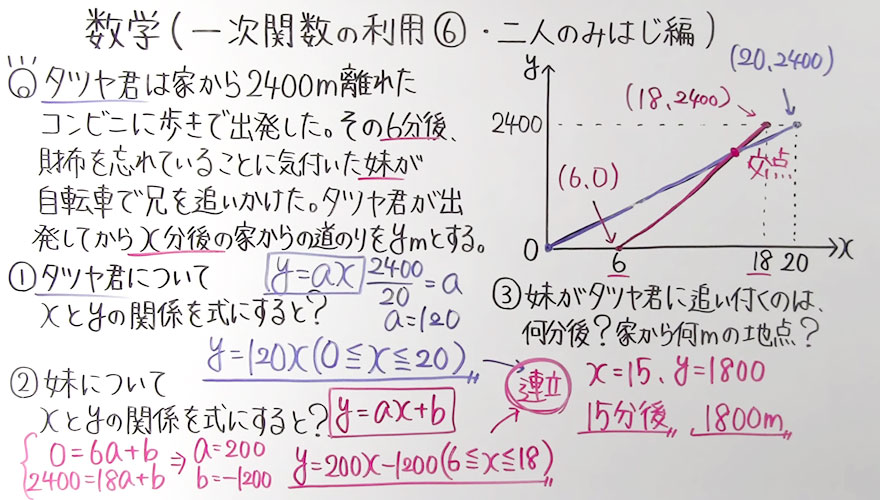 数学(一次関数の利用⑥・二人のみはじ編)
タツヤ君は家から2400m離れた
コンビニに歩きで出発した。その6分後、
財布を忘れていることに気付いた妹が
自転車で兄を追いかけた。タツヤ君が出
発してからx分後の家からの道のりをymとする。
①タツヤ君について
xとyの関係を式にすると?
y=ax
2400/20=a
a=120
y=120x(0≦x≦20)
②妹について
xとyの関係を式にすると?
y=ax+b
0=6a+b
2400=18a+b
⇒
a=200
b=-1200
y=200x-1200(6≦x≦18)
y
(20、2400)
(18,2400)
2400
(6,0)
交点
0
6
18
20
x
③妹がタツヤ君に追い付くのは、
何分後?家から何mの地点?
連立
x=15、y=1800
15分後、1800m